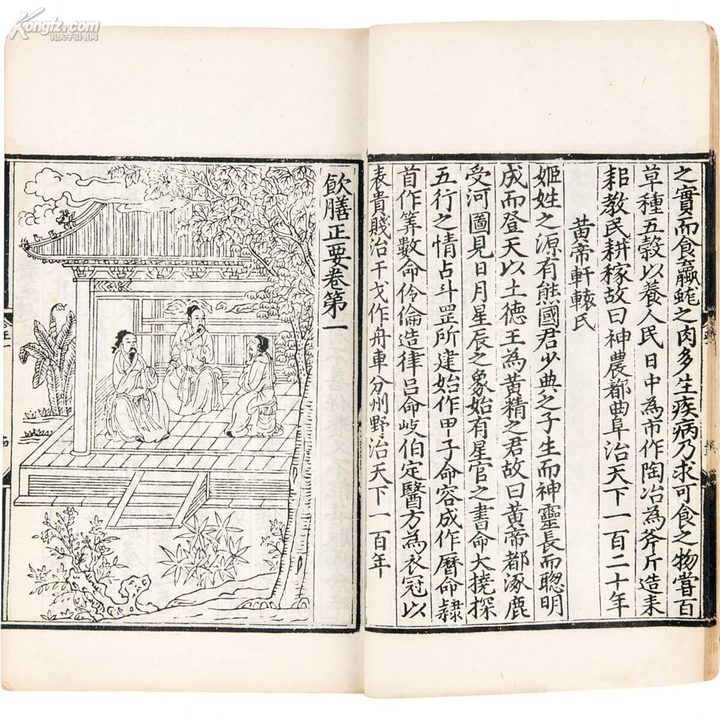 之實而食蠃蛖之肉多生疾病乃求可食之物嘗百
草種五穀以養人民日中為市作陶冶為斧斤造耒
耜教民耕稼故曰神農都曲阜治天下一百二十年
黄帝軒轅氏
姬姓之源有熊國君少典之子生而神靈長而聰明
成而登天以土德王為黄精之君故曰黄帝都涿鹿
受河圖見日月星辰之象始有星官之書命大撓探
五行之情占斗罡所建始作甲子命容成作曆命隸
首作筭數命伶倫造律吕命岐伯定醫方為衣冠以
表貴賤治干戈作舟車分州野治天下一百年
飲膳正要卷第一
Kongfz.com
孔夫子旧书网